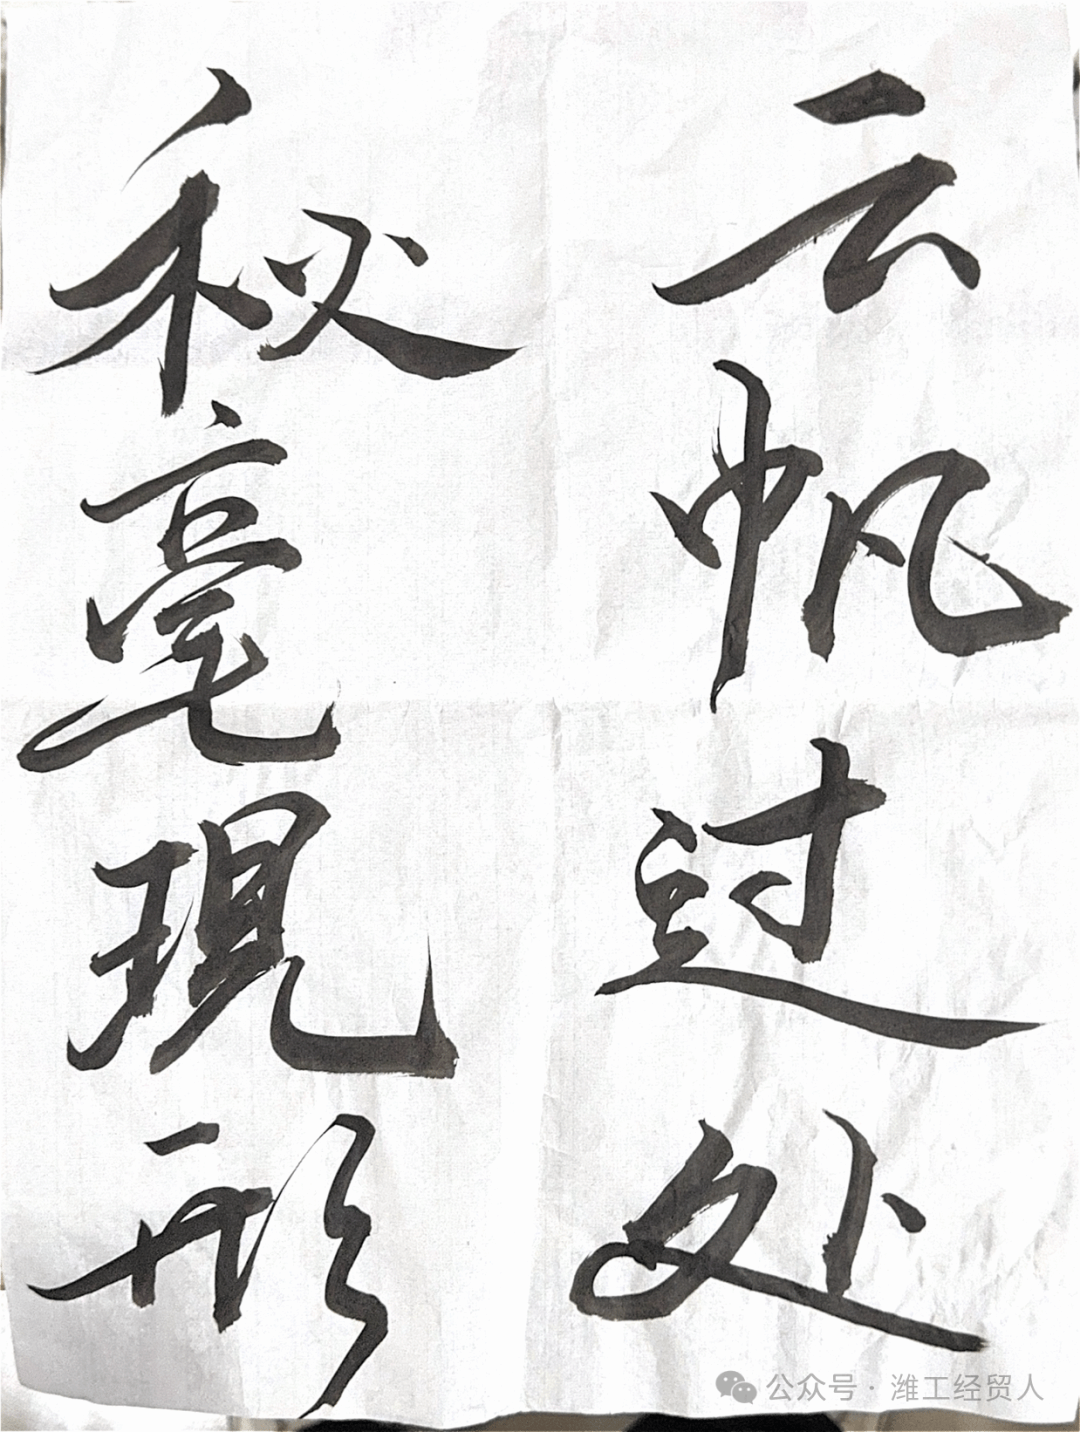 云帆过处
秘毫現形
公众号·潍工经贸人